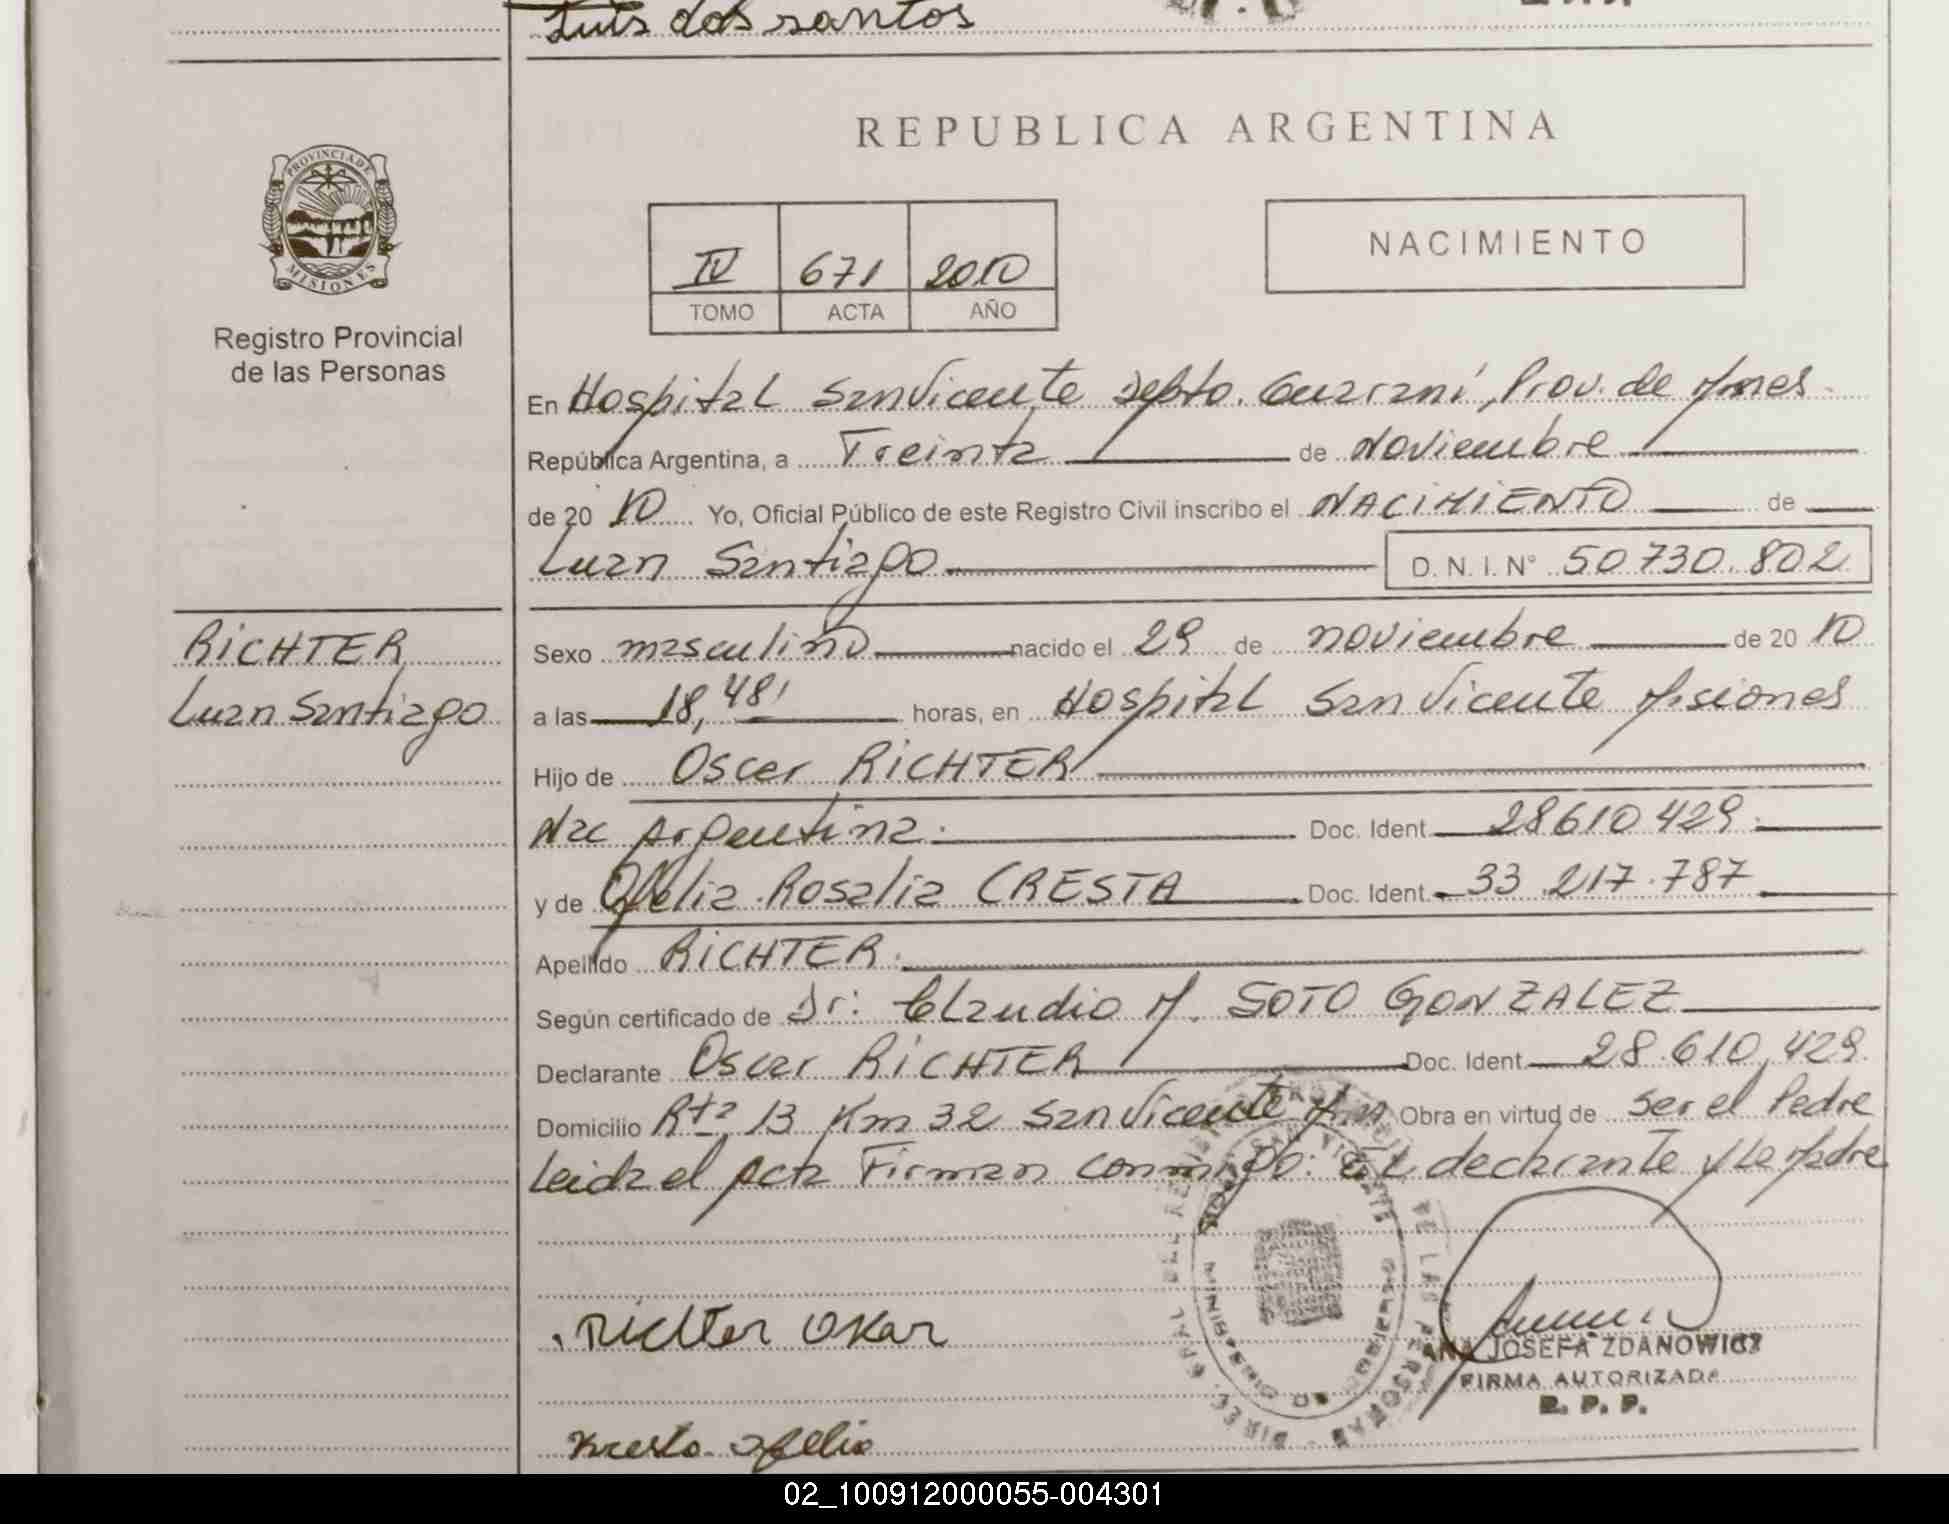 Luis dos santos
REPUBLICA ARGENTINA
PROVINCIA DE
MISIONES
IV 671 2010
TOMO ACTA AÑO
NACIMIENTO
Registro Provincial
de las Personas
En Hospital San Vicente Depto. Guaraní, Prov. de Mnes
República Argentina, a Treinta de Noviembre
de 20 10 Yo, Oficial Público de este Registro Civil inscribo el NACIMIENTO de
Luan Santiago D. N. I. N° 50 730. 802
RICHTER
Luan Santiago
Sexo masculino nacido el 29 de noviembre de 20 10
a las 18,48' horas, en Hospital San Vicente Misiones
Hijo de Oscar RICHTER
Nac Argentina. Doc. Ident 28610 429.
y de Ofelia Rosalia CRESTA Doc. Ident. 33 217.787
Apellido RICHTER.
Según certificado de Dr: Claudio M. SOTO GONZALEZ
Declarante Oscar RICHTER Doc. Ident 28.610,429.
Domicilio Rta 13 Km 32 San Vicente Obra en virtud de ser el Padre
Leida el acta Firman conmigo: EL declarante y La Madre
Richter Oskar
ANA JOSEFA ZDANOWICZ
FIRMA AUTORIZADA
R. P. P.
Kresta Ofelia
02_100912000055-004301